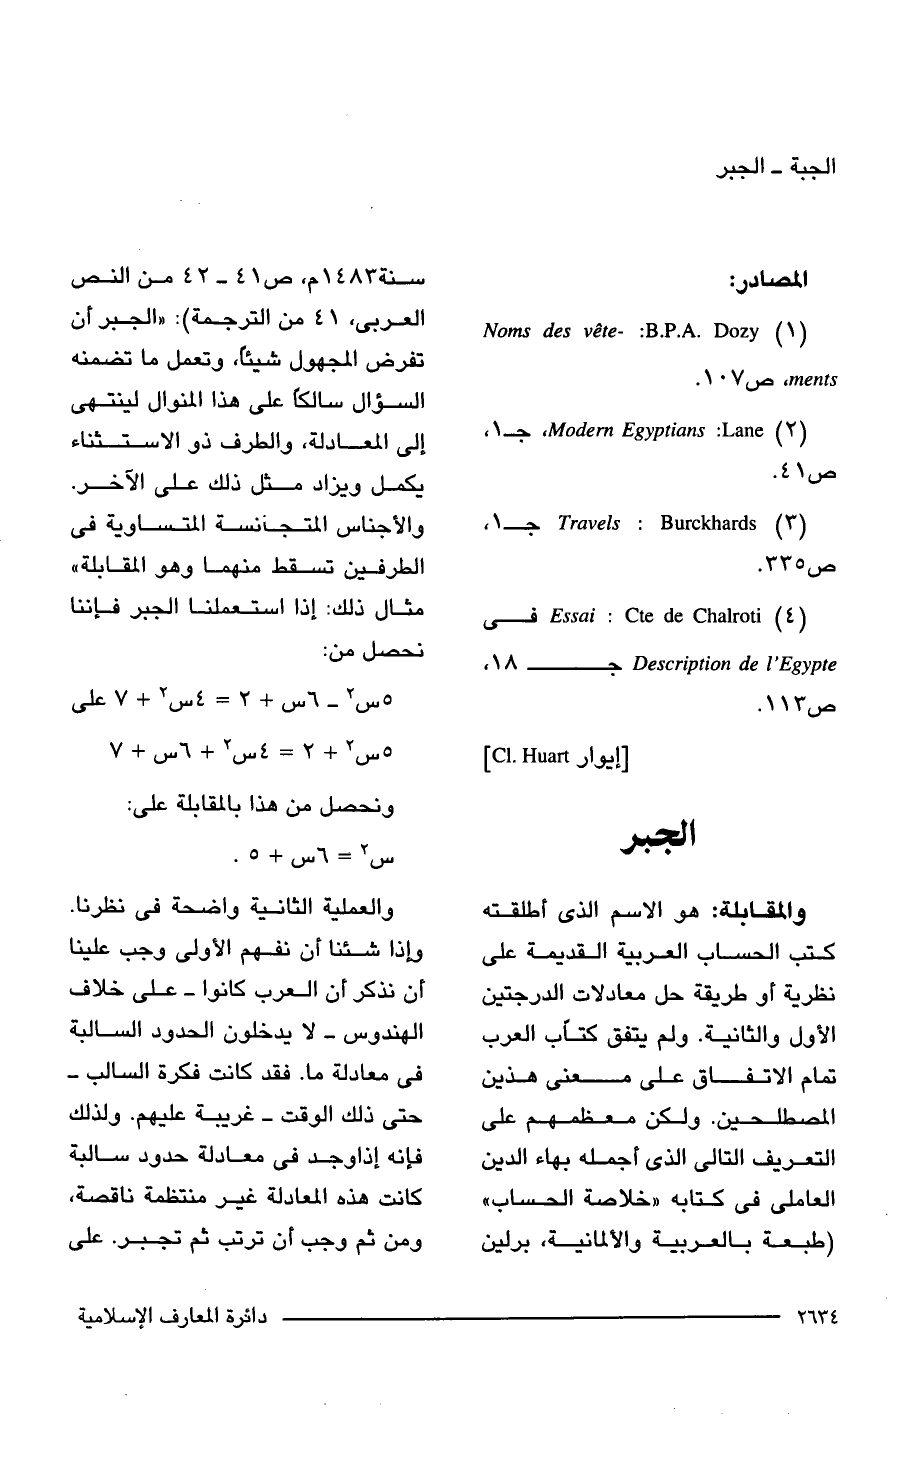 الجبة ـ الجبر
المصادر:
(١) B.P.A. Dozy: Noms des vête-
ments، ص١٠٧.
(٢) Lane: Modern Egyptians، جـ١،
ص٤١.
(٣) Burckhards : Travels جـ١،
ص٣٣٥.
(٤) Cte de Chalroti : Essai فى
Description de l'Egypte جـ ١٨،
ص١١٣.
[إيوار Cl. Huart]
الجبر
والمقابلة: هو الاسم الذى أطلقته
كتب الحساب العربية القديمة على
نظرية أو طريقة حل معادلات الدرجتين
الأول والثانية. ولم يتفق كتاب العرب
تمام الاتفاق على معنى هذين
المصطلحين. ولكن معظمهم على
التعريف التالى الذى أجمله بهاء الدين
العاملى فى كتابه «خلاصة الحساب»
(طبعة بالعربية والألمانية، برلين
سنة١٤٨٣م، ص٤١ ـ ٤٢ من النص
العربى، ٤١ من الترجمة): «الجبر أن
تفرض المجهول شيئًا، وتعمل ما تضمنه
السؤال سالكًا على هذا المنوال لينتهى
إلى المعادلة، والطرف ذو الاستثناء
يكمل ويزاد مثل ذلك على الآخر.
والأجناس المتجانسة المتساوية فى
الطرفين تسقط منهما وهو المقابلة»
مثال ذلك: إذا استعملنا الجبر فإننا
نحصل من:
٥س٢ ـ ٦س + ٢ = ٤س٢ + ٧ على
٥س٢ + ٢ = ٤س٢ + ٦س + ٧
ونحصل من هذا بالمقابلة على:
س٢ = ٦س + ٥ .
والعملية الثانية واضحة فى نظرنا.
وإذا شئنا أن نفهم الأولى وجب علينا
أن نذكر أن العرب كانوا ـ على خلاف
الهندوس ـ لا يدخلون الحدود السالبة
فى معادلة ما. فقد كانت فكرة السالب ـ
حتى ذلك الوقت ـ غريبة عليهم. ولذلك
فإنه إذاوجد فى معادلة حدود سالبة
كانت هذه المعادلة غير منتظمة ناقصة،
ومن ثم وجب أن ترتب ثم تجبر. على
٢٦٣٤ دائرة المعارف الإسلامية